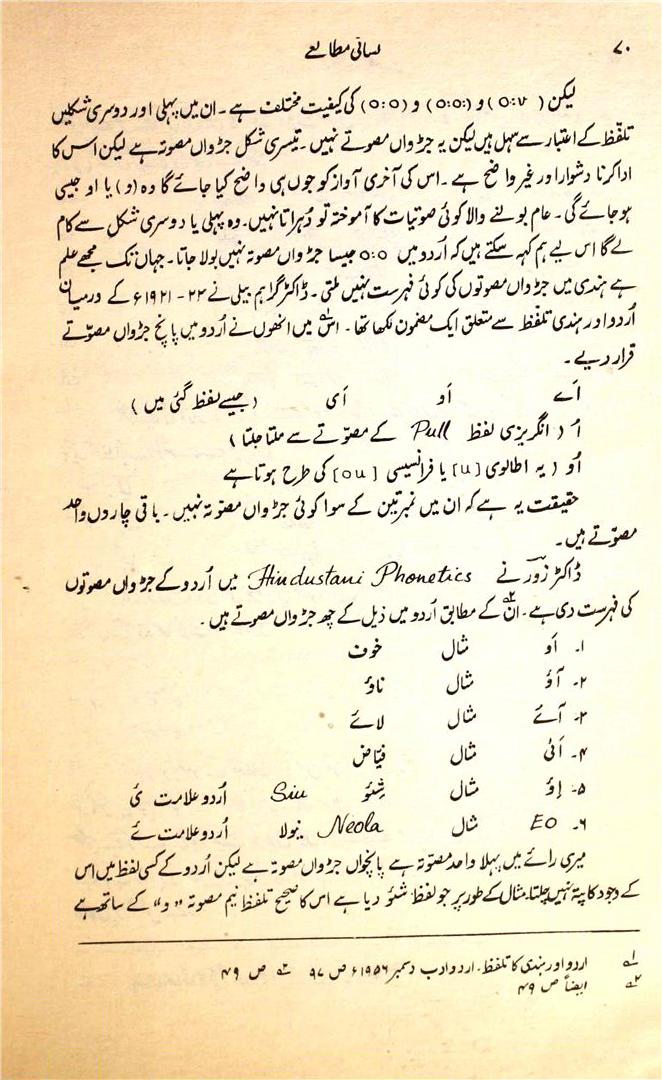 ۷۰
لسانی مطالعے
لیکن (o:v) و (o:o:) و (o:o) کی کیفیت مختلف ہے۔ ان میں پہلی اور دوسری شکلیں
تلفّظ کے اعتبار سے سہل ہیں لیکن یہ جڑواں مصوتے نہیں۔ تیسری شکل جڑواں مصوتہ ہے لیکن اس کا
ادا کرنا دشوار اور غیر واضح ہے۔ اس کی آخری آواز کو جوں ہی واضح کیا جائے گا وہ (و) یا او جیسی
ہو جائے گی۔ عام بولنے والا کوئی صوتیات کا آموختہ تو دُہراتا نہیں۔ وہ پہلی یا دوسری شکل سے کام
لے گا اس لیے ہم کہہ سکتے ہیں کہ اُردو میں o:o جیسا جڑواں مصوتہ نہیں بولا جاتا۔ جہاں تک مجھے علم
ہے ہندی میں جڑواں مصوتوں کی کوئی فہرست نہیں ملتی۔ ڈاکٹر گراہم بیلی نے ۲۲ - ۱۹۲۱ء کے درمیان
اُردو اور ہندی تلفّظ سے متعلق ایک مضمون لکھا تھا۔ اس۱؎ میں انھوں نے اُردو میں پانچ جڑواں مصوّتے
قرار دیے۔
اَے اَو اَی (جیسے لفظ گئی میں)
اُ (انگریزی لفظ Pull کے مصوّتے سے ملتا جلتا)
اُو (یہ اطالوی [u] یا فرانسیسی [ou] کی طرح ہوتا ہے
حقیقت یہ ہے کہ ان میں نمبر تین کے سوا کوئی جڑواں مصوّتہ نہیں۔ باقی چاروں واحد
مصوّتے ہیں۔
ڈاکٹر زورؔ نے Hindustani Phonetics میں اُردو کے جڑواں مصوتوں
کی فہرست دی ہے۔ ان۲؎ کے مطابق اُردو میں ذیل کے چھ جڑواں مصوتے ہیں۔
۱۔ اَو مثال خوف
۲۔ آؤ مثال ناؤ
۳۔ آئے مثال لائے
۴۔ اَئی مثال فیّاض
۵۔ اِؤ مثال شِئوْ Siu اُردو علامت ئ
۶۔ Eo مثال Neola نیولا اُردو علامت ئے
میری رائے میں پہلا واحد مصوّتہ ہے پانچواں جڑواں مصوتہ ہے لیکن اُردو کے کسی لفظ میں اس
کے وجود کا پتہ نہیں چلتا۔ مثال کے طور پر جو لفظ شئو دیا ہے اس کا صحیح تلفظ نیم مصوتہ "و" کے ساتھ ہے
۱؎ اردو اور ہندی کا تلفظ۔ اردو ادب دسمبر ۱۹۵۶ء ص ۹۷ ۲؎ ص ۴۹
۲؎ ایضاً ص ۴۹